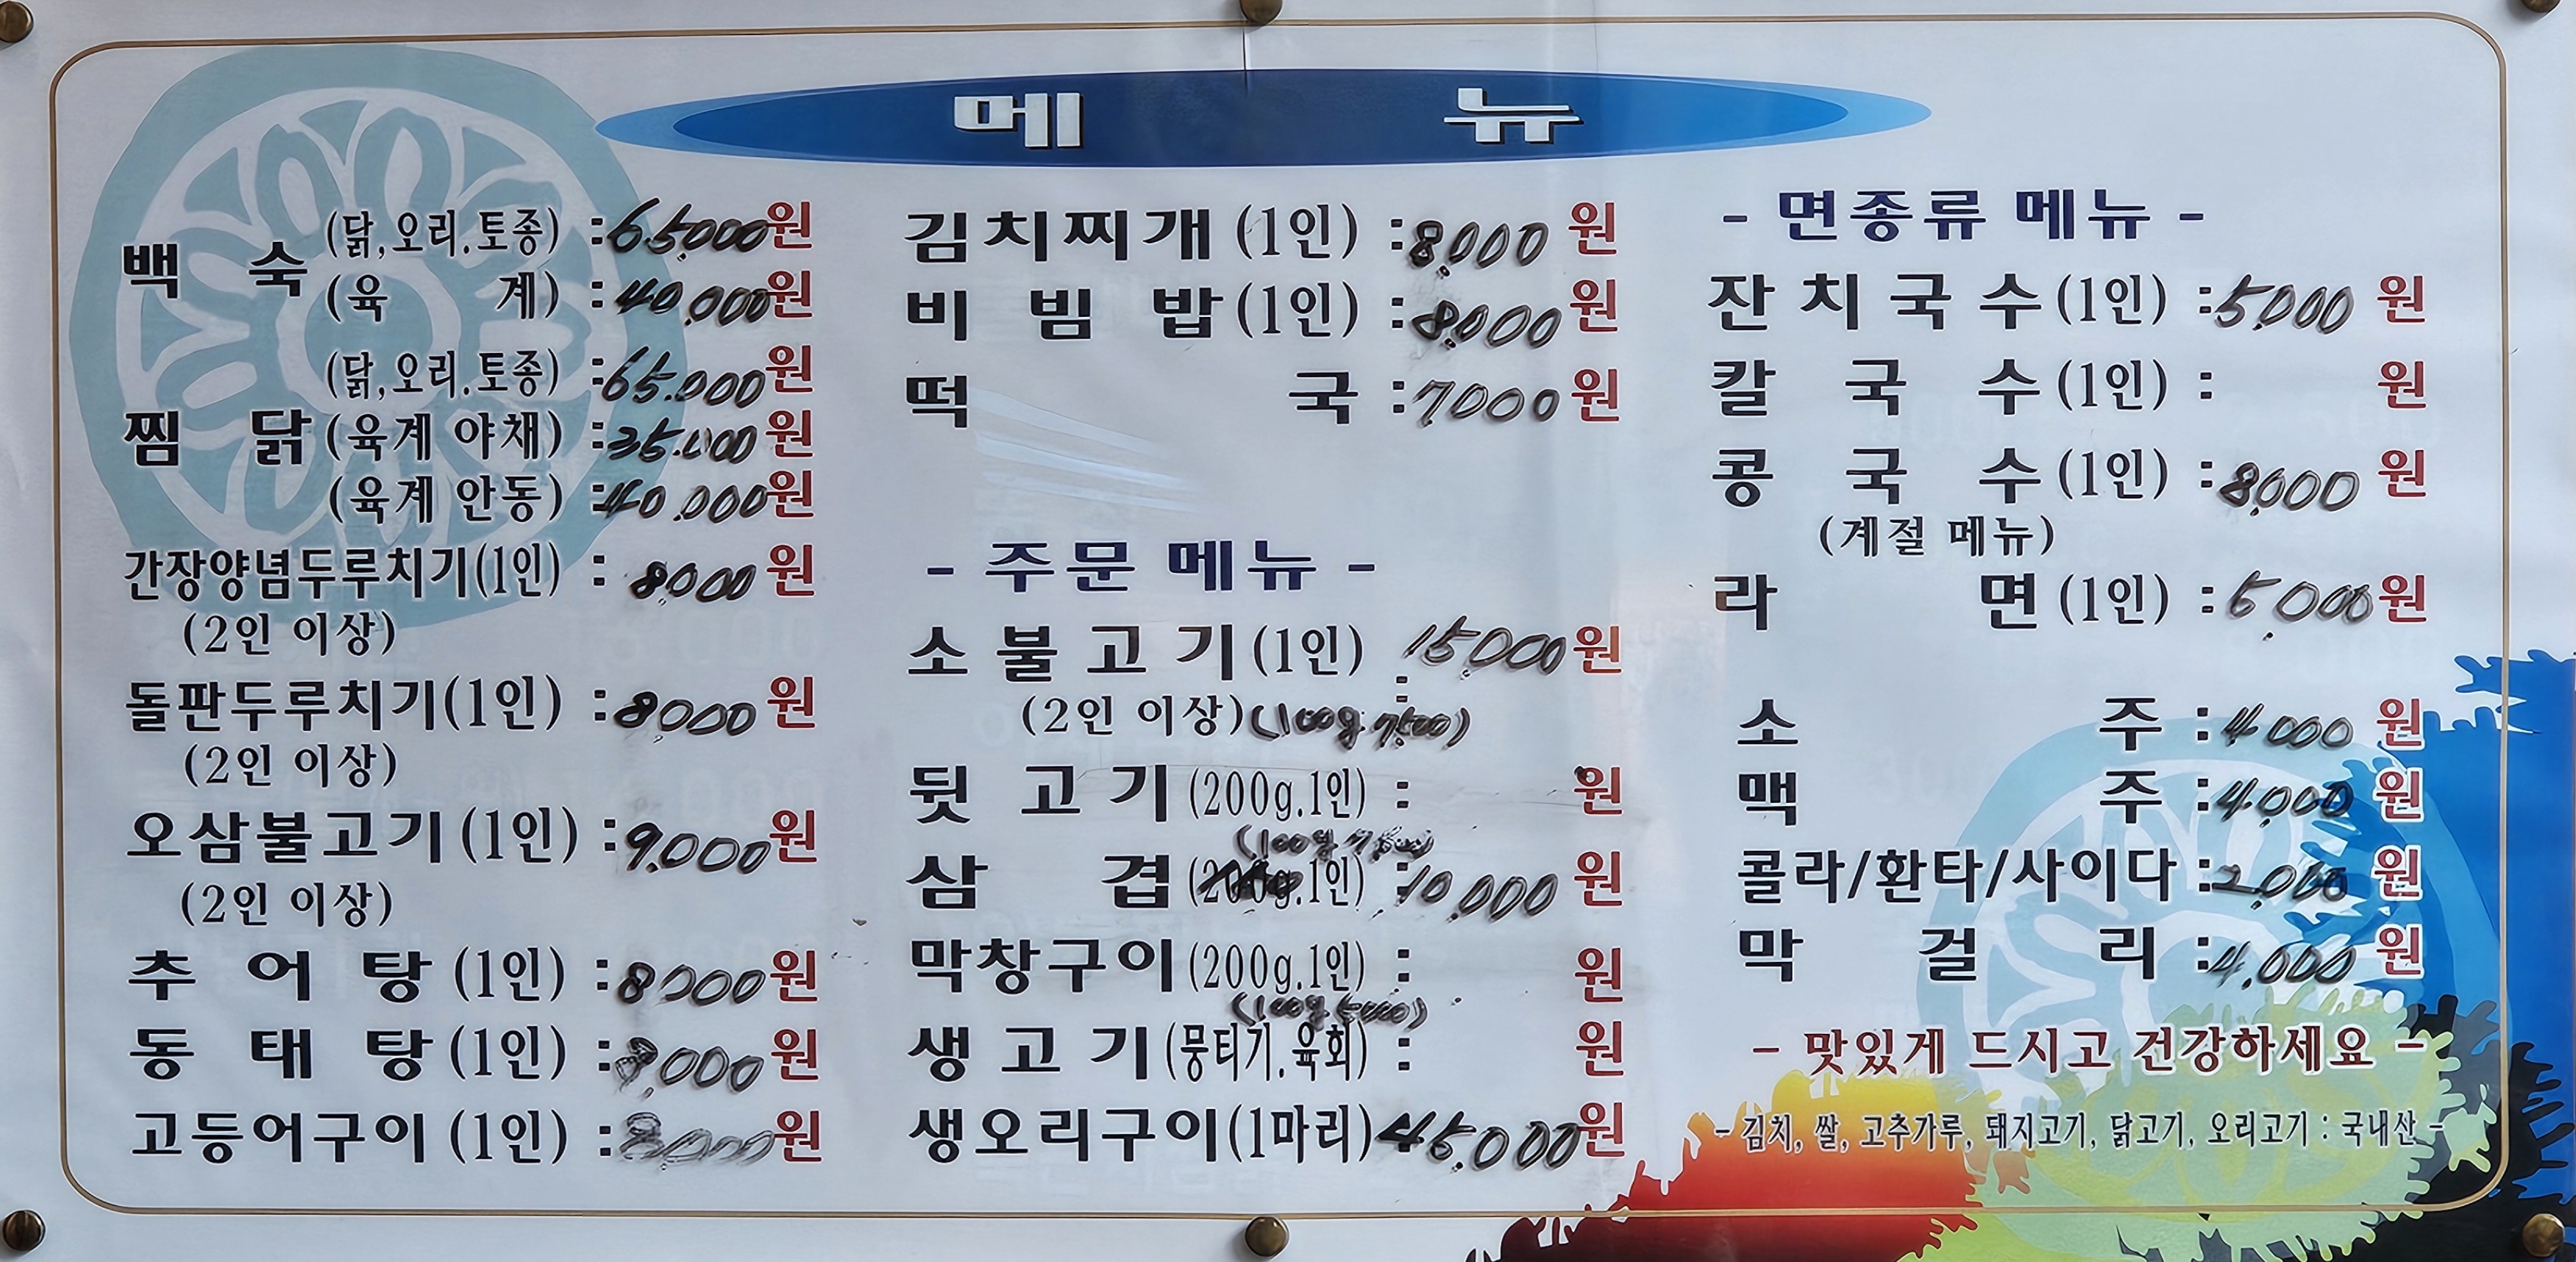 메 뉴
백 숙 (닭,오리.토종) : 65,000원
(육 계) : 40,000원
찜 닭 (닭,오리.토종) : 65.000원
(육계 야채) : 35.000원
(육계 안동) : 40.000원
간장양념두루치기(1인) : 8000원
(2인 이상)
돌판두루치기(1인) : 8000원
(2인 이상)
오삼불고기(1인) : 9.000원
(2인 이상)
추 어 탕 (1인) : 8000원
동 태 탕 (1인) : 8000원
고등어구이 (1인) : 8000원
김치찌개 (1인) : 8,000원
비 빔 밥 (1인) : 8,000원
떡 국 : 7000원
- 주문 메뉴 -
소 불 고 기 (1인) : 15,000원
(2인 이상) (100g.7,500)
뒷 고 기 (200g.1인) : 원
(100g.7,500)
삼 겹 (200g.1인) : 10,000원
막창구이 (200g.1인) : 원
생 고 기 (뭉티기.육회) : 원
생오리구이(1마리) 45,000원
- 면종류 메뉴 -
잔 치 국 수 (1인) : 5,000 원
칼 국 수 (1인) : 원
콩 국 수 (1인) : 8,000 원
(계절 메뉴)
라 면 (1인) : 5,000원
소 주 : 4.000 원
맥 주 : 4.000 원
콜라/환타/사이다 : 2,000 원
막 걸 리 : 4,000 원
- 맛있게 드시고 건강하세요 -
- 김치, 쌀, 고추가루, 돼지고기, 닭고기, 오리고기 : 국내산 -